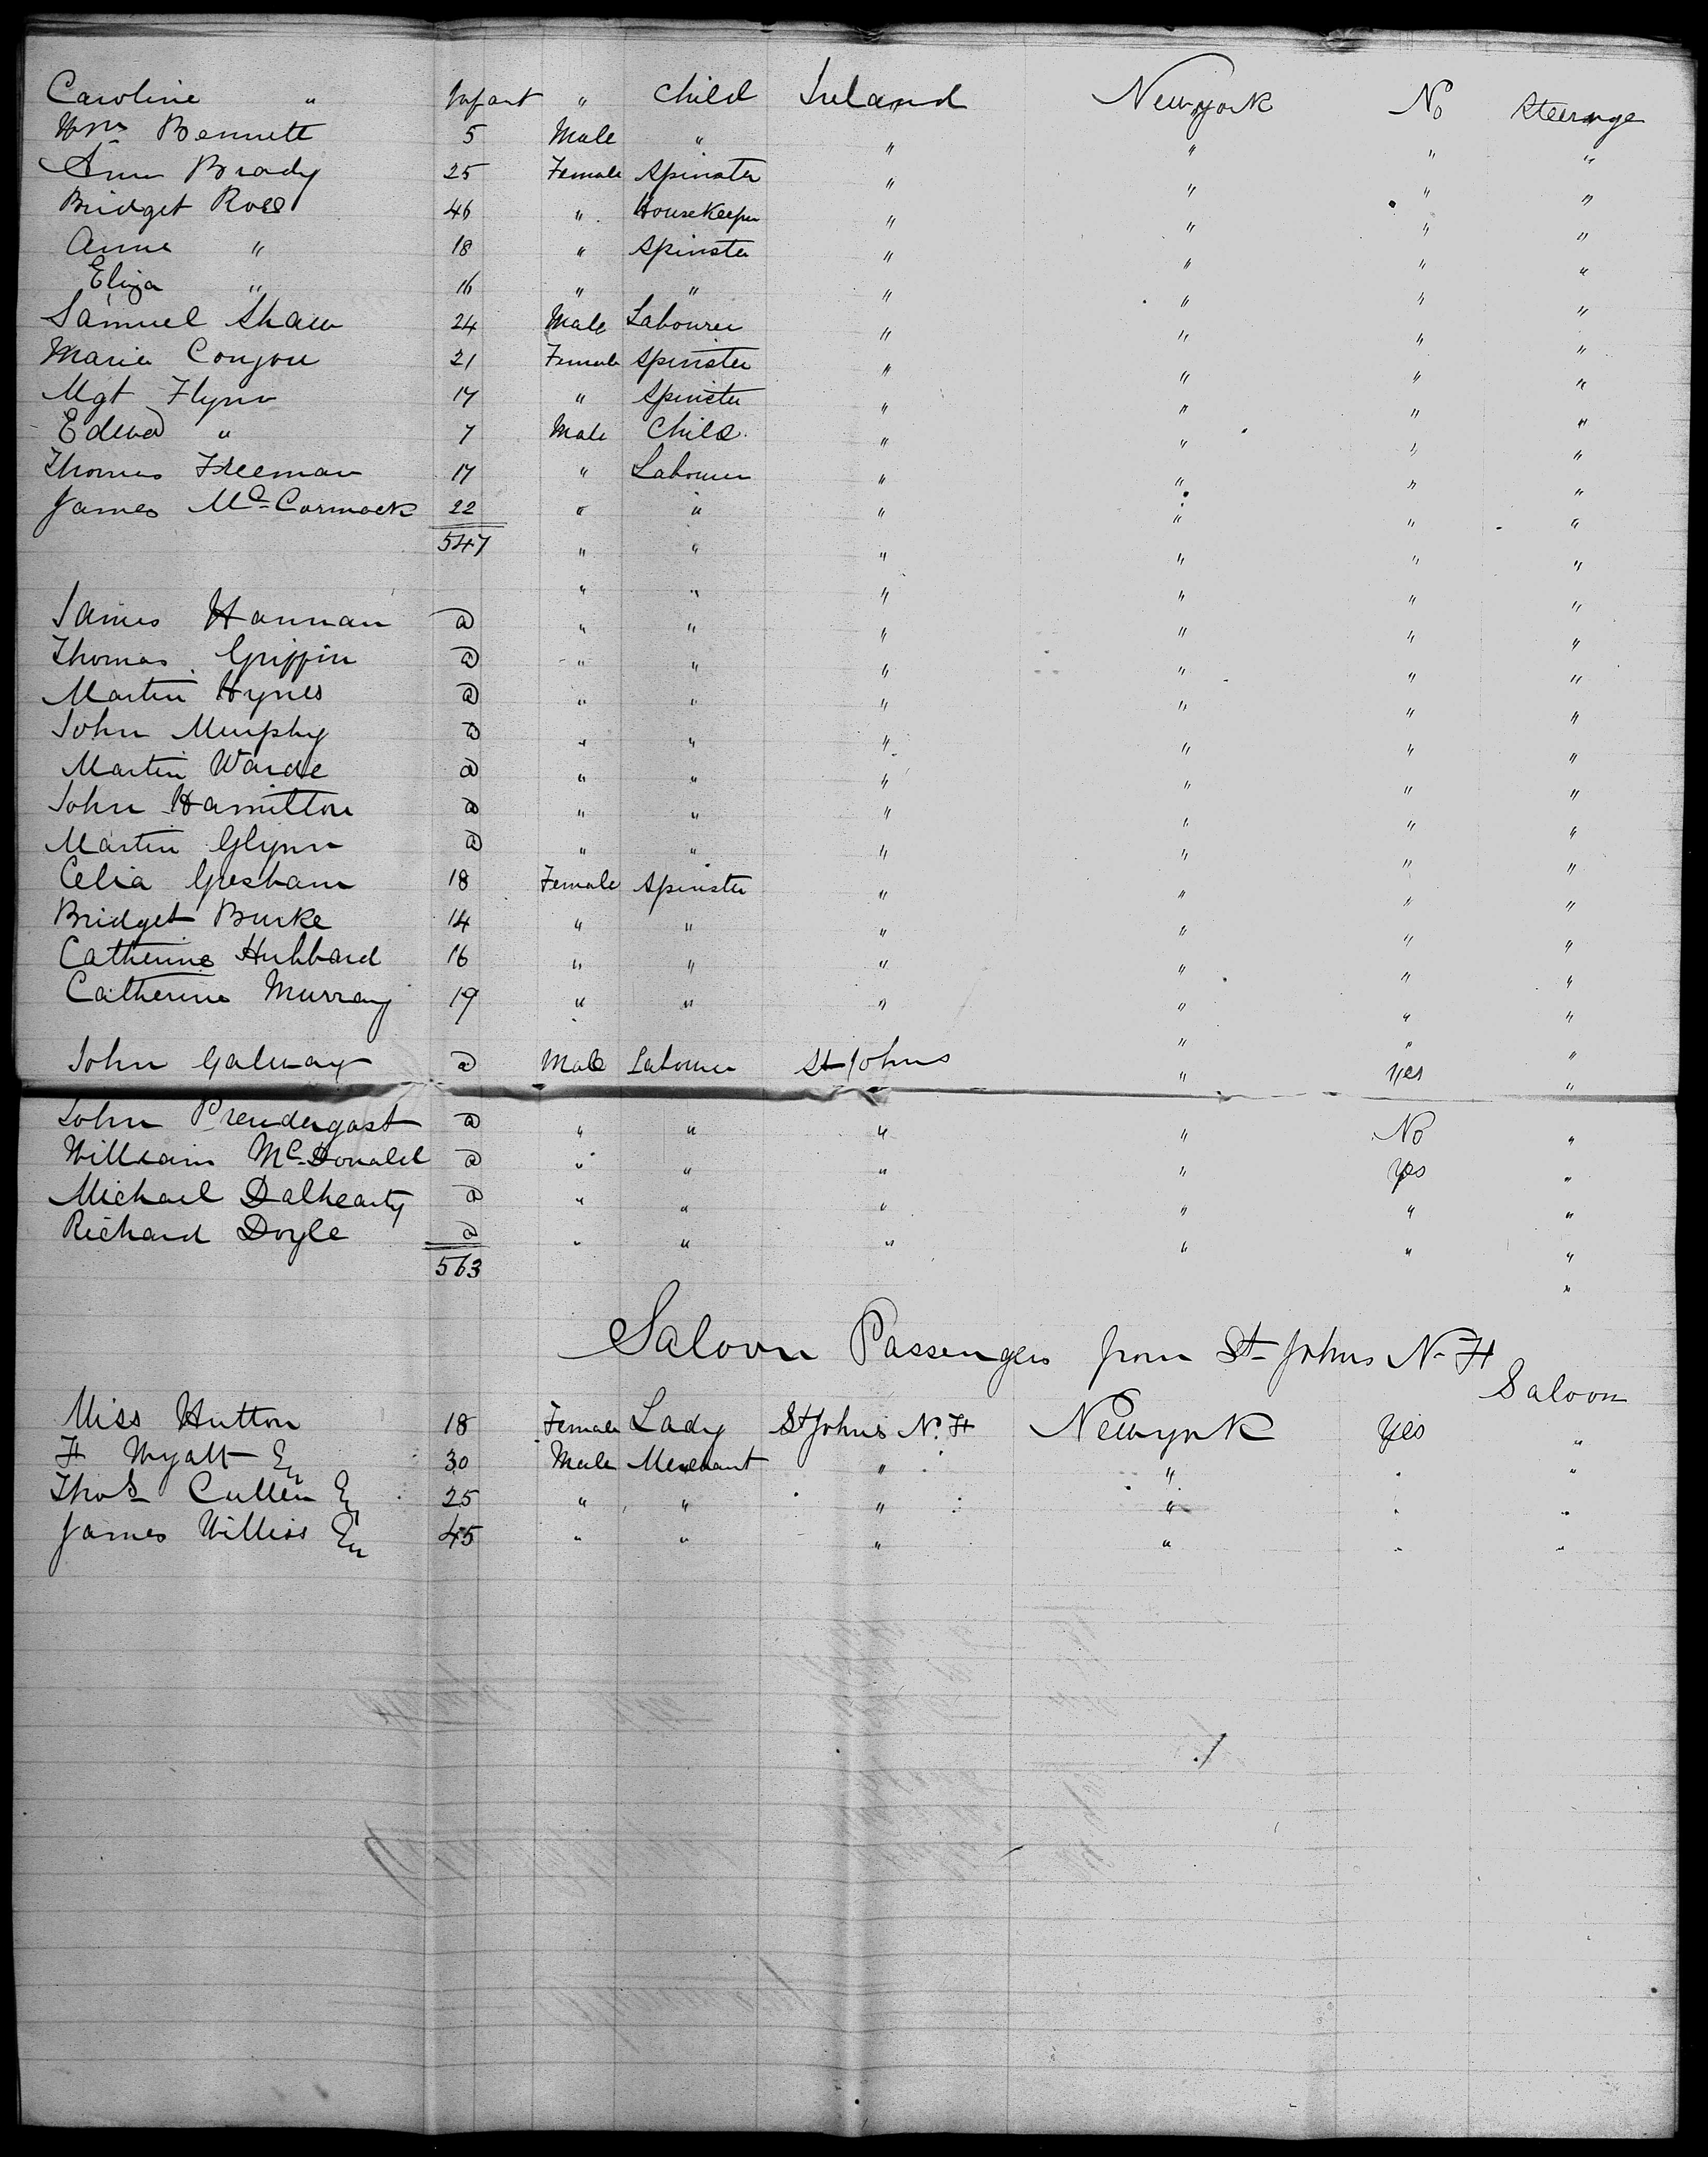 Caroline " Infant " Child Ireland New York No Steerage
Wm Bennett 5 Male " " " " "
Ann Brady 25 Female Spinster " " " "
Bridget Ross 46 " HouseKeeper " " " "
Anne " 18 " Spinster " " " "
Eliza " 16 " " " " " "
Samuel Shaw 24 Male Labourer " " " "
Maria 21 Female Spinster " " " "
Mgt Flynn 17 " Spinster " " " "
Edwd " 7 Male Child " " " "
Thomas Freeman 17 " Labourer " " " "
James McCormack 22 " " " " " "
547 " " " " " "
" " " " " "
James Hannan a " " " " " "
Thomas Griffin a " " " " " "
Martin Hynes a " " " " " "
John Murphy a " " " " " "
Martin Warde a " " " " " "
John Hamilton a " " " " " "
Martin Glynn a " " " " " "
Celia Gresham 18 Female Spinster " " " "
Bridget Burke 14 " " " " " "
Catherine Hubbard 16 " " " " " "
Catherine Murray 19 " " " " " "
" " "
John Galway a Male Labourer St Johns " Yes "
John Prendergast a " " " " No "
William McDonald a " " " " Yes "
Michael Dalhearty a " " " " " "
Richard Doyle a " " " " " "
563 "
Saloon Passengers from St Johns N. F
Saloon
Miss Hutton 18 Female Lady St Johns N. F New york Yes "
Wyatt 30 Male Merchant " " " "
Thos Cullen 25 " " " " " "
James Williss 45 " " " " " "